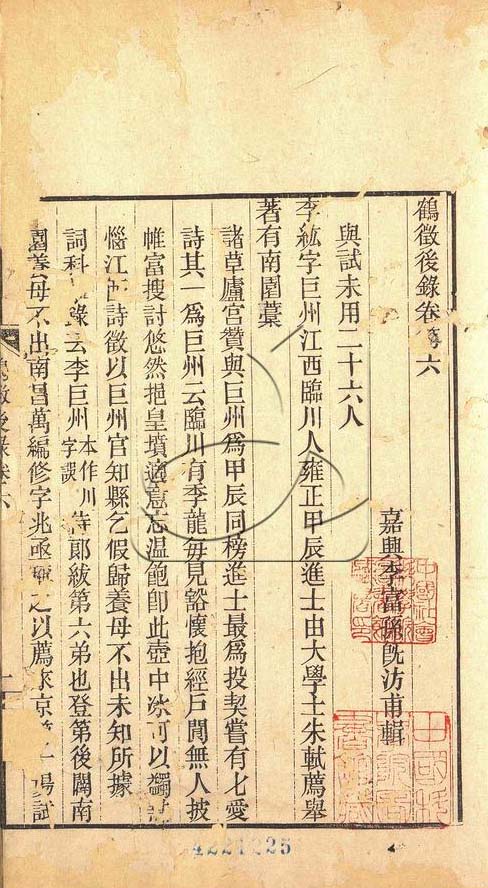 鶴徵後錄卷第六
嘉興李富孫旣汸甫輯
與試未用二十六人
李紘字巨州江西臨川人雍正甲辰進士由大學士朱軾薦舉
著有南園藁
諸草廬宫贊與巨州爲甲辰同榜進士最爲投契嘗有七愛
詩其一爲巨州云臨川有李龍每見豁懷抱經戶閴無人披
帷富搜討悠然挹皇墳適意忘温飽卽此壺中 可以獨
惱江西詩徵以巨州官知縣乞假歸養母不出未知所據
詞科 錄云李巨州本作川字誤侍郎紱第六弟也登第後闢南
園養母不出南昌萬編修字兆 之以薦來京 場試
鶴徵後錄卷六
4221225